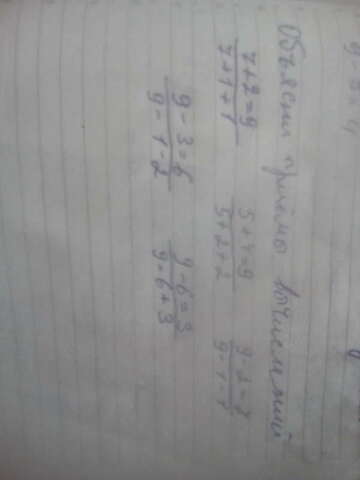 9-5=4
Объясни приёмы вычислений
7+2=9 5+4=9 9-2=7
7+1+1 5+2+2 9-1-1
9-3=6 9-6=3
9-1-2 9=6+3